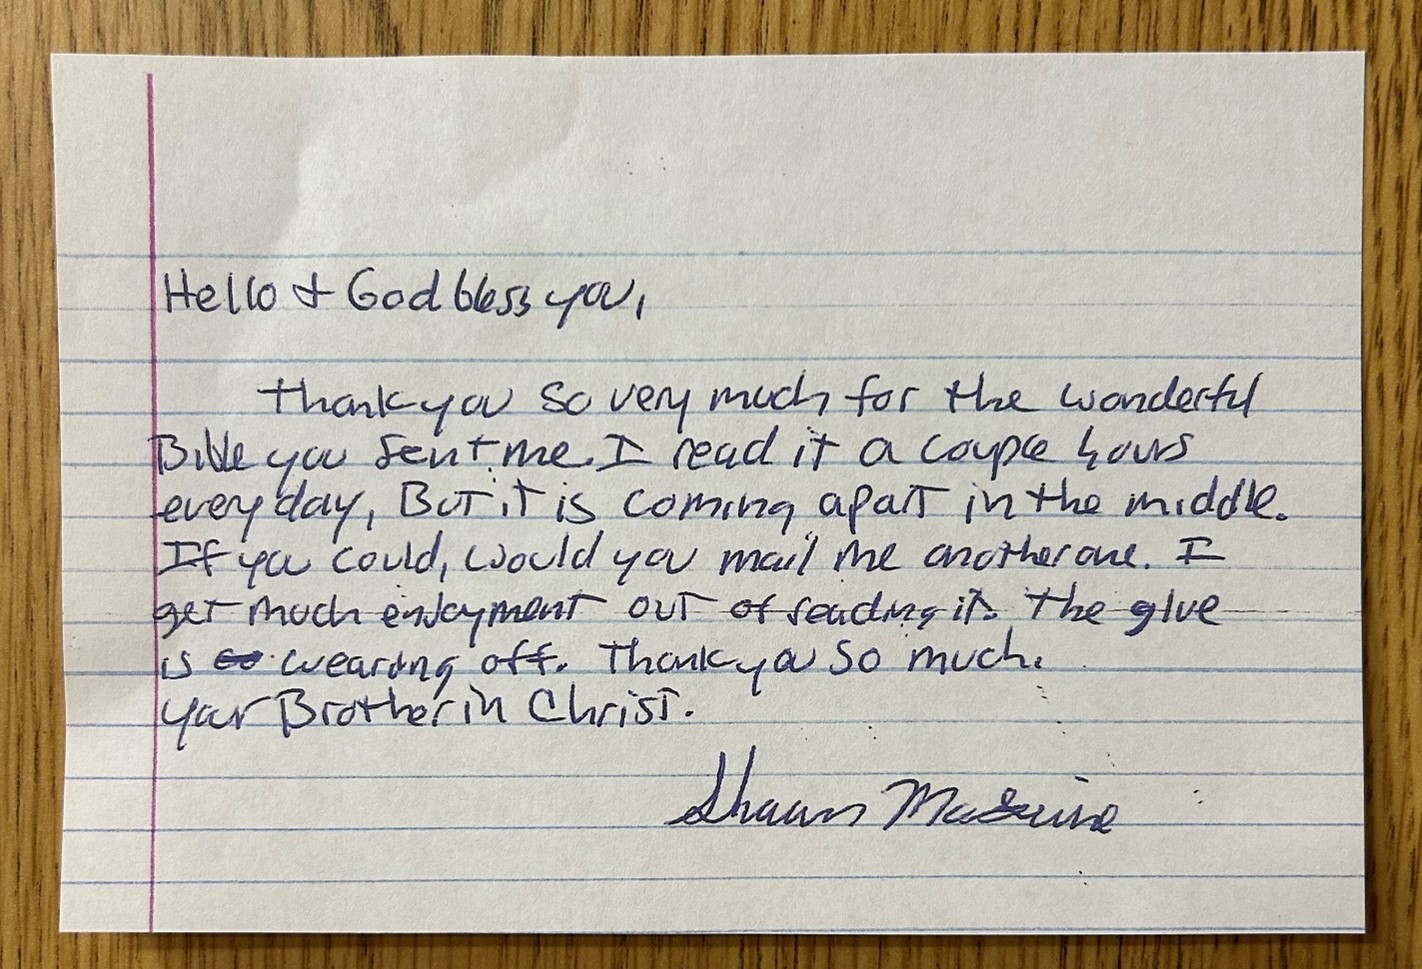 Hello & God bless you,
Thank you so very much for the wonderful
Bible you sent me. I read it a couple hours
every day, But it is coming apart in the middle.
If you could, would you mail me another one. I
get much enjoyment out of reading it. The glue
is wearing off. Thank you so much.
Your Brother in Christ.
Shawn